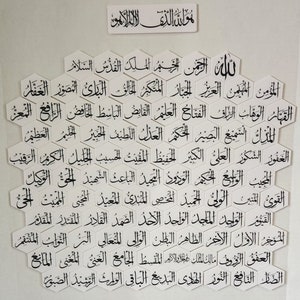 هو الله الذي لا إله إلا هو
الله الرحمن الرحيم الملك القدوس السلام
المؤمن المهيمن العزيز الجبار المتكبر الخالق البارئ المصور الغفار
القهار الوهاب الرزاق الفتاح العليم القابض الباسط الخافض الرافع المعز
المذل السميع البصير الحكم العدل اللطيف الخبير الحليم العظيم
الغفور الشكور العلي الكبير الحفيظ المقيت الحسيب الجليل الكريم الرقيب
المجيب الواسع الحكيم الودود المجيد الباعث الشهيد الحق الوكيل
القوي المتين الولي الحميد المحصي المبدئ المعيد المحيي المميت الحي
القيوم الواجد الماجد الواحد الأحد الصمد القادر المقتدر المقدم
المؤخر الأول الآخر الظاهر الباطن الوالي المتعالي البر التواب المنتقم
العفو الرؤوف مالك الملك ذو الجلال والإكرام المقسط الجامع الغني المغني المانع
الضار النافع النور الهادي البديع الباقي الوارث الرشيد الصبور